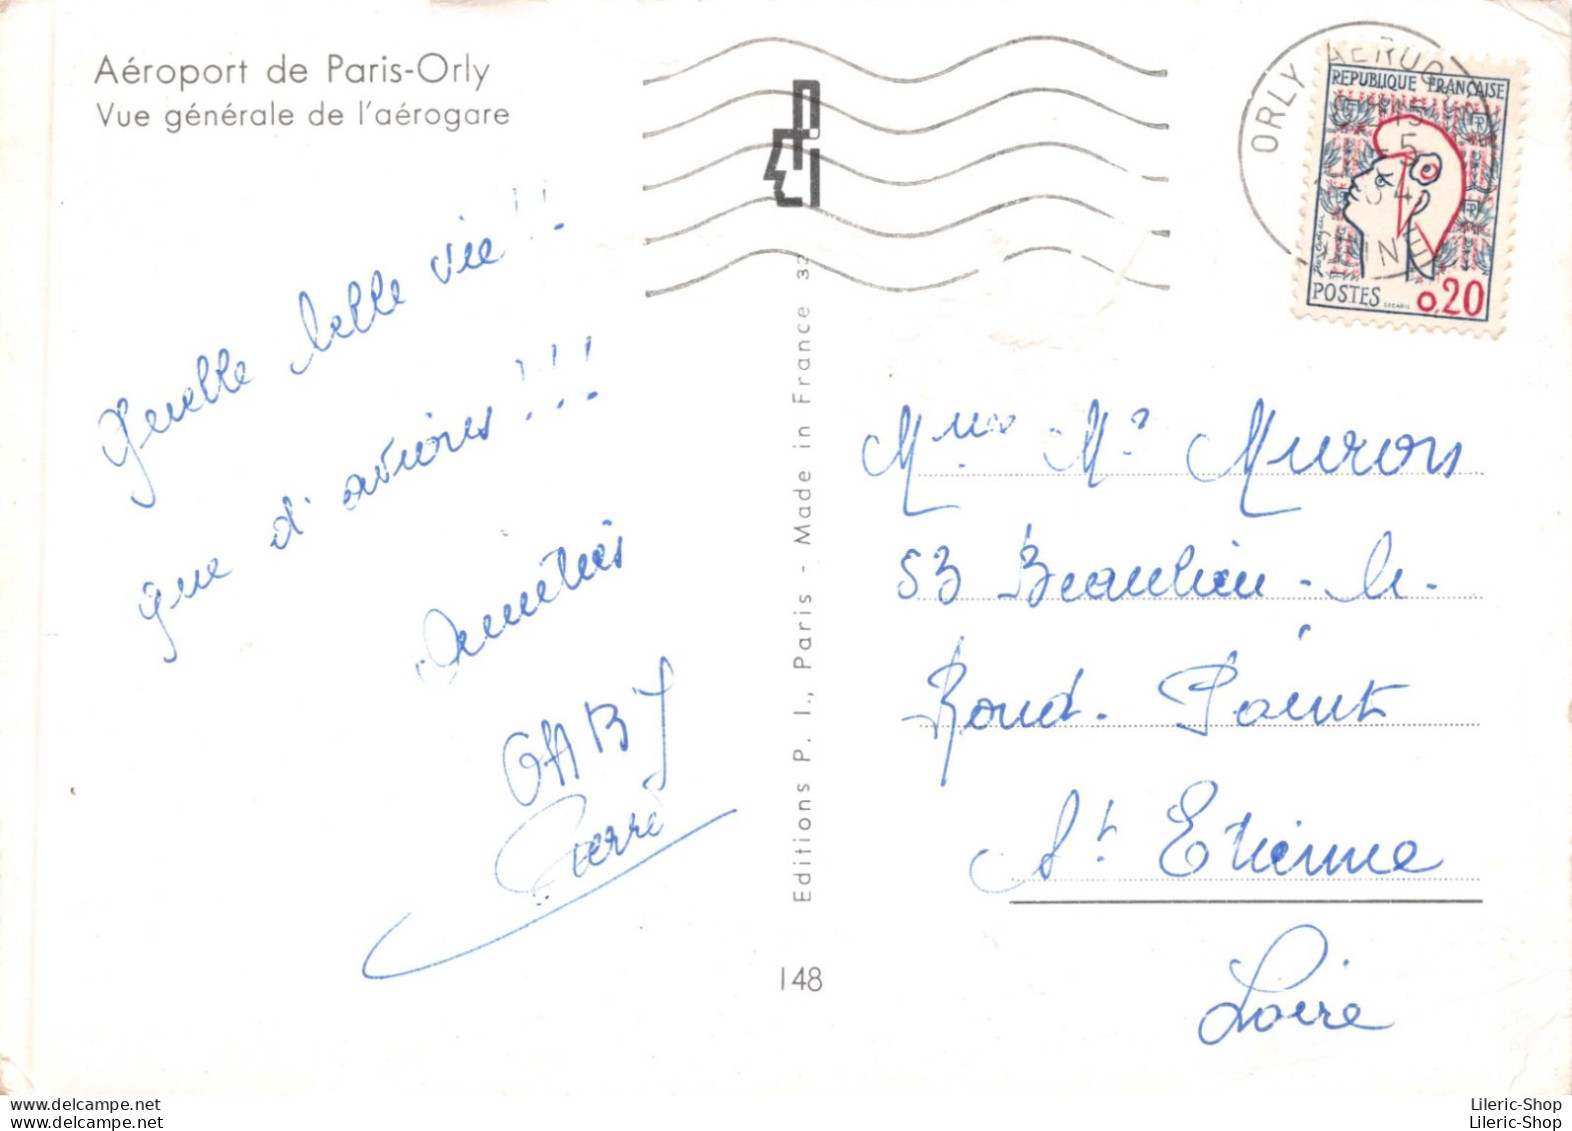 Aéroport de Paris-Orly
Vue générale de l'aérogare
Quelle belle vie!!
que d'avions!!!
Amitiés
GABY
Pierre
Editions P. I., Paris - Made in France 32
148
ORLY AEROGARE
REPUBLIQUE FRANÇAISE
POSTES
0,20
Muron
53 Beaulieu-le-
Rond-Point
St Etienne
Loire
Lileric-Shop
Lileric-Shop
Lileric-Shop
Lileric-Shop